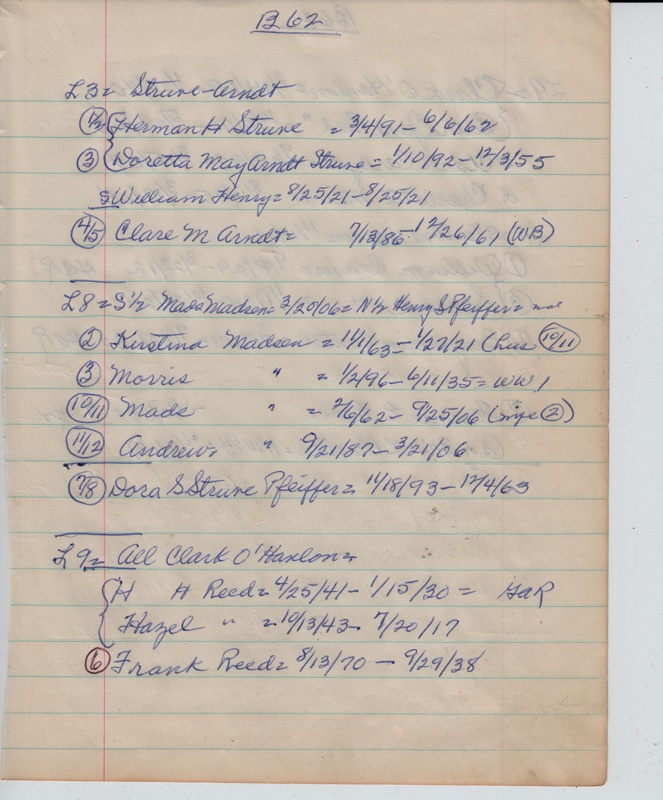 B62
L3= Struve-Arndt
1/2 Herman H Struve = 3/4/91 - 6/6/62
3 Doretta May Arndt Struve = 1/10/92 - 12/3/55
S William Henry = 8/25/21 - 8/25/21
4/5 Clare M Arndt = 7/13/86 - 12/26/61 (WB)
L8 = S 1/2 Mads Madsen = 3/20/06 = N 1/2 Henry S Pfeiffer =
2 Kirstina Madsen = 11/1/63 - 1/27/21 (hus 10/11)
3 Morris " = 1/2/96 - 6/11/35 = WW 1
10/11 Mads " = 2/6/62 - 9/25/06 (wife 2)
11/12 Andrew = " 9/21/87 - 3/21/06
7/8 Dora S Struve Pfeiffer = 11/18/93 - 12/4/63
L9 = All Clark O'Hanlon =
H H Reed = 4/25/41 - 1/15/30 = GAR
Hazel " = 10/13/43 - 7/20/17
6 Frank Reed = 8/13/70 - 9/29/38